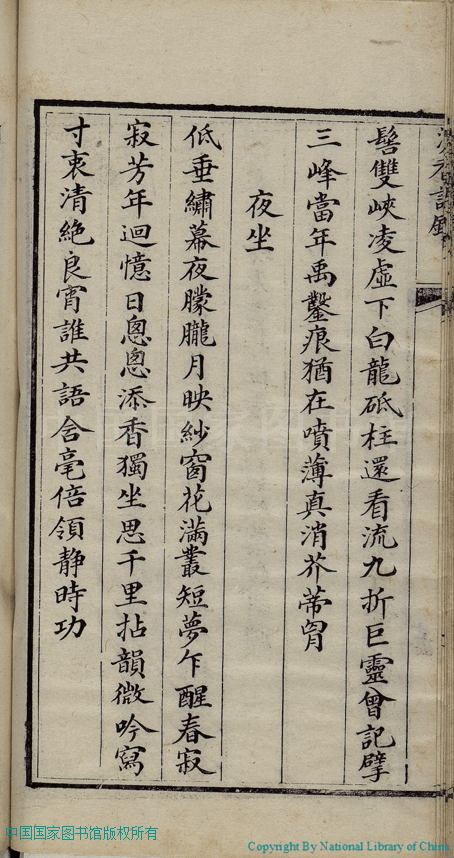 髻雙峽凌虛下白龍砥柱還看流九折巨靈曾記擘
三峰當年禹鑿痕猶在噴薄真消芥蔕胷
夜坐
低垂繡幕夜朦朧月映紗窗花滿叢短夢乍醒春寂
寂芳年迴憶日悤悤添香獨坐思千里拈韻微吟寫
寸衷清絶良宵誰共語含毫倍領静時功
中国国家图书馆版权所有
Copyright By National Library of China